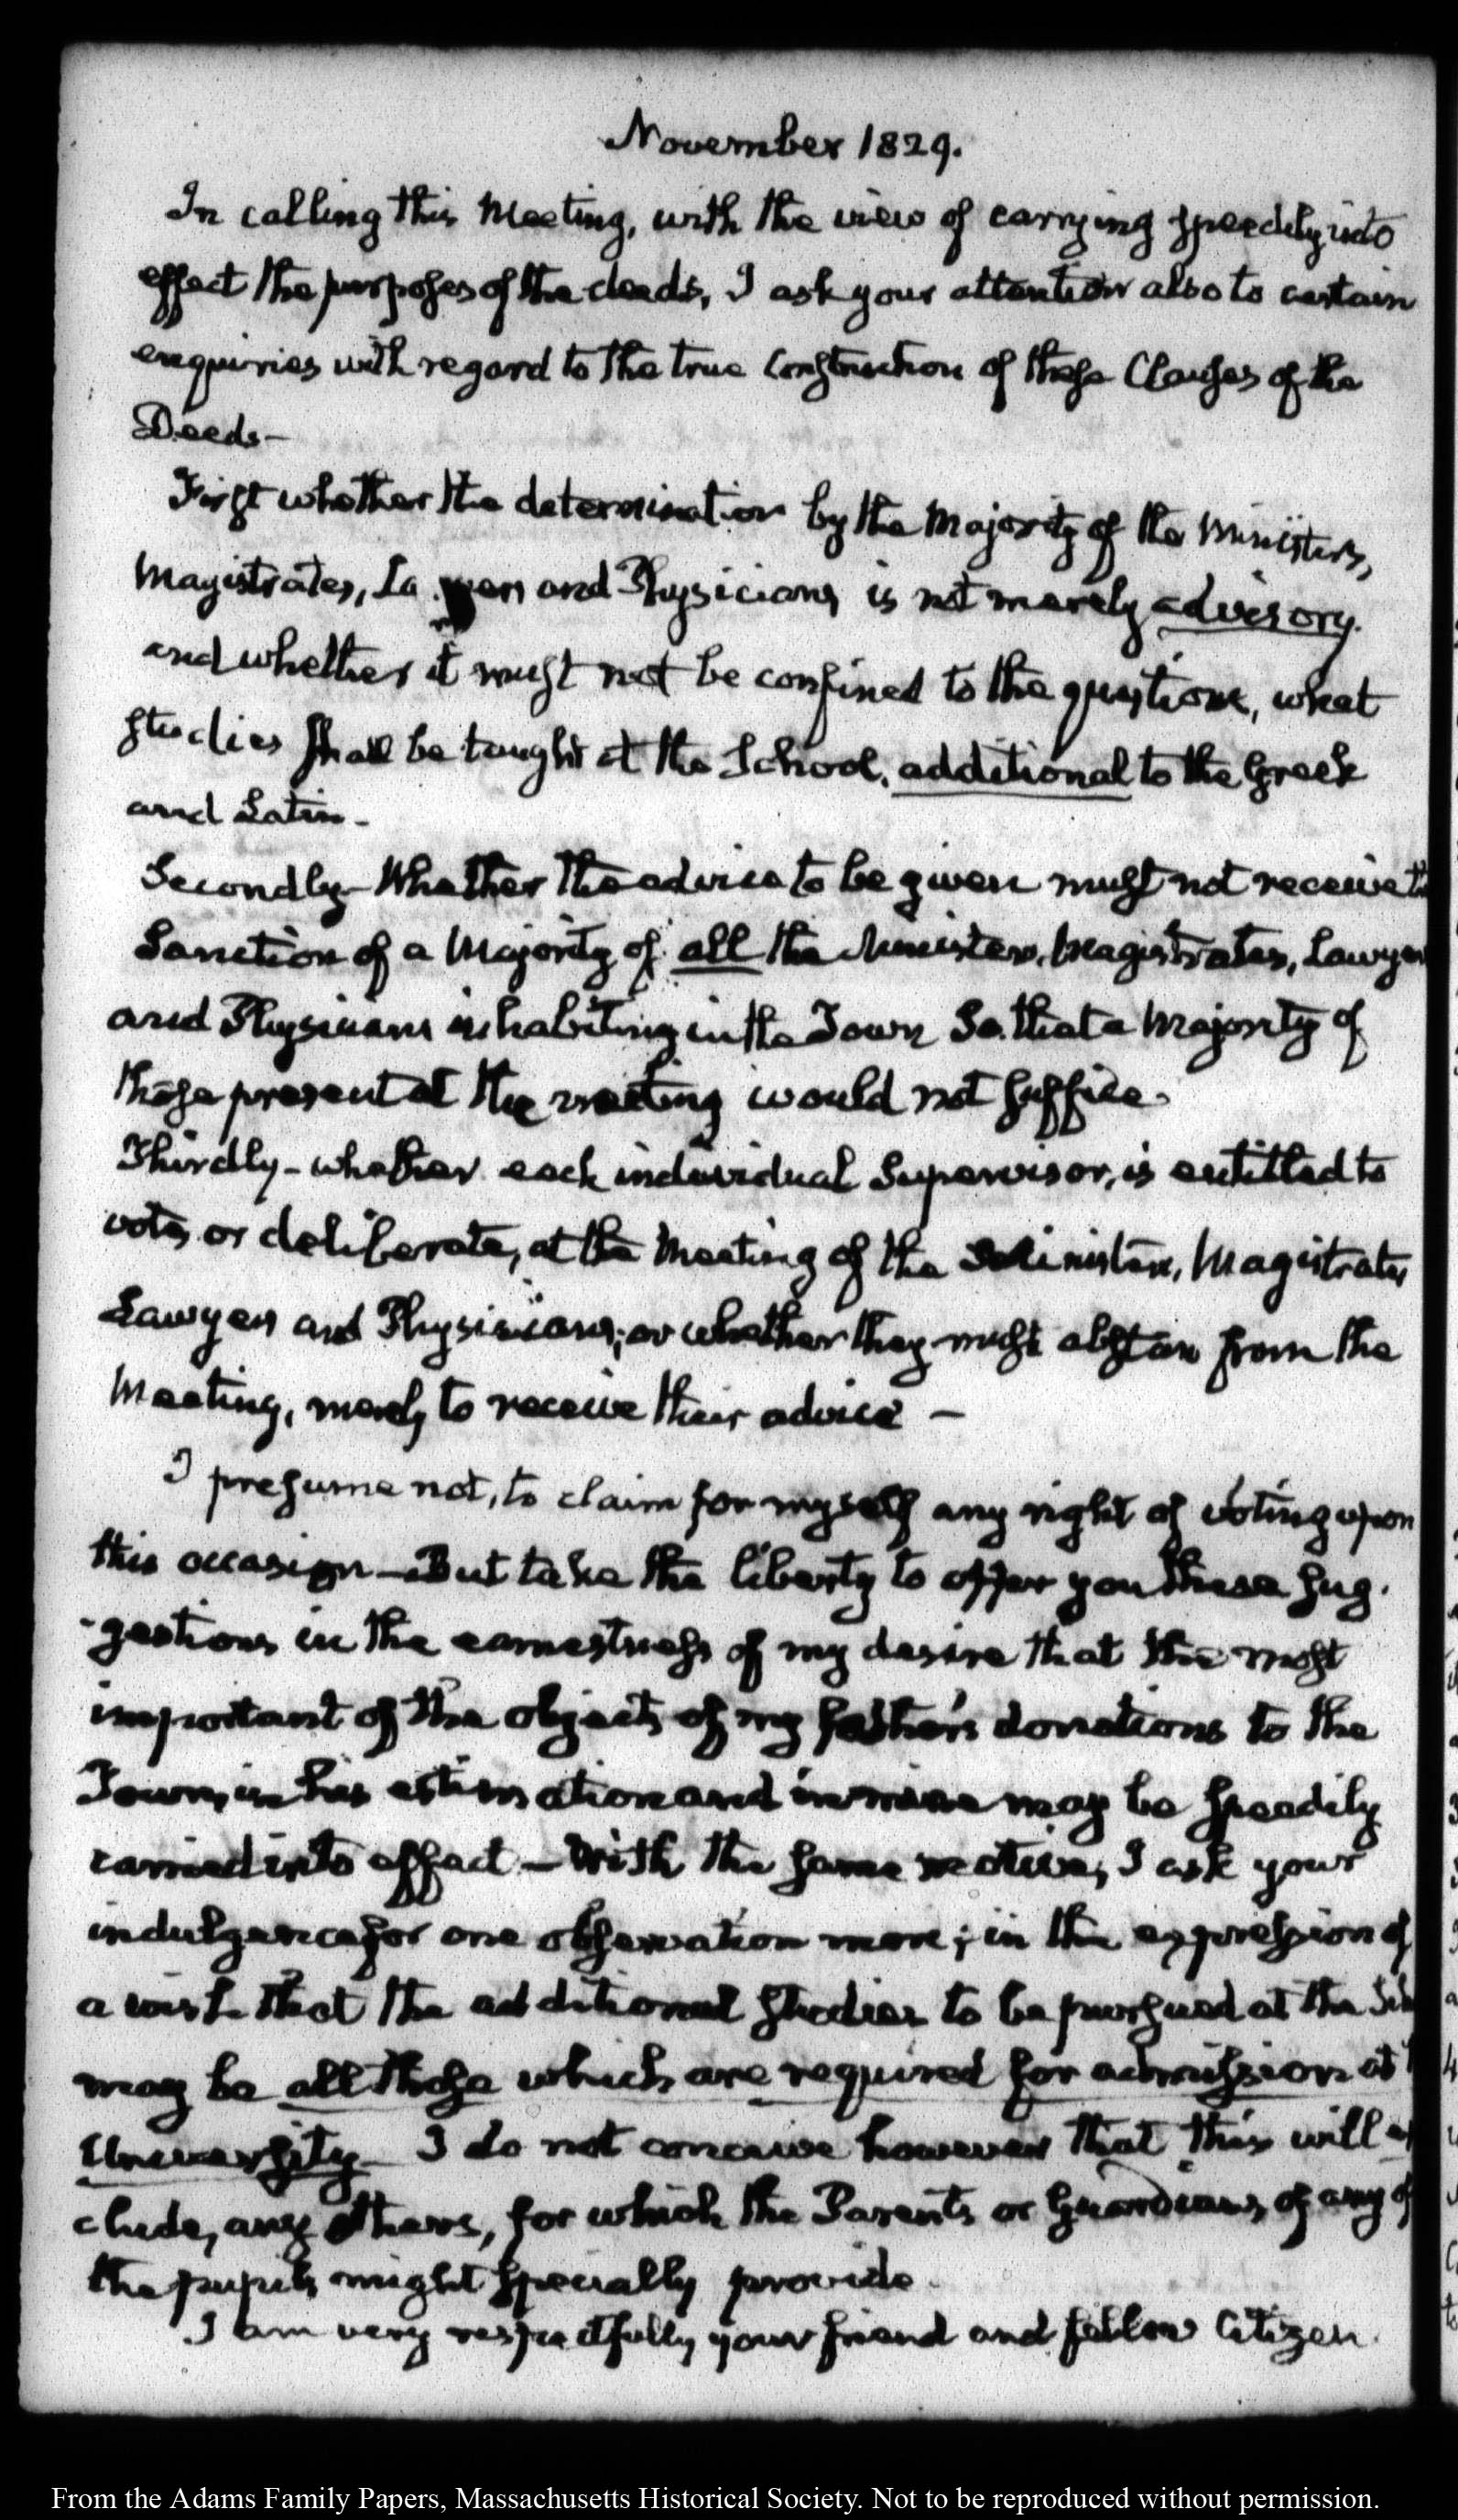 November 1829.
In calling this Meeting, with the view of carrying speedily into
effect the purposes of the deeds, I ask your attention also to certain
enquiries with regard to the true Construction of these Clauses of the
Deeds—
First whether the determination by the Majority of the Ministers,
Magistrates, and Physicians is not merely advisory.
and whether it must not be confined to the question, what
studies shall be taught at the School, additional to the Greek
and Latin—
Secondly— Whether the advice to be given must not receive the
Sanction of a Majority of all the Ministers, Magistrates, Lawyers
and Physicians inhabiting in the Town So that a Majority of
those present at the meeting would not suffice.
Thirdly— whether each individual Supervisor, is entitled to
vote, or deliberate, at the Meeting of the Ministers, Magistrates
Lawyers and Physicians; or whether they must abstain from the
Meeting, merely to receive their advice —
I presume not, to claim for myself any right of voting upon
this occasion — But take the liberty to offer you these sug-
-gestions in the earnestness of my desire that the most
important of the objects of my father's donations to the
Town, in his estimation and in mine may be speedily
carried into effect — With the same motive, I ask your
indulgence for one observation more; in the expression of
a wish that the additional studies to be pursued at the Sch
may be all those which are required for admission at
University— I do not conceive however that this will ex
clude, any others, for which the Parents or Guardians, of any of
the pupils might specially provide.
I am very respectfully your friend and fellow Citizen.
From the Adams Family Papers, Massachusetts Historical Society. Not to be reproduced without permission.